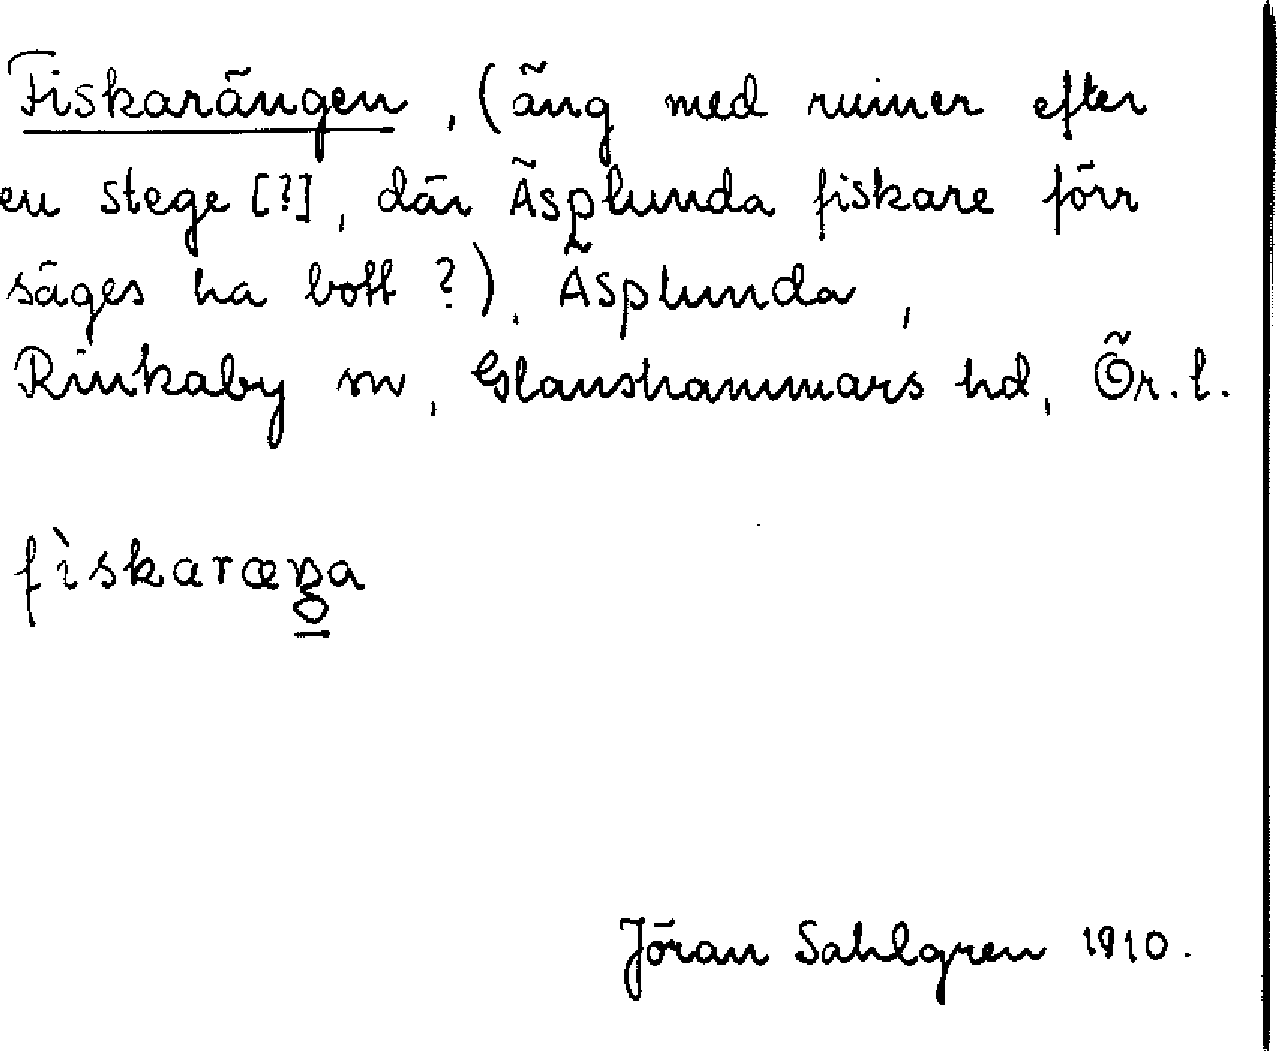 Fiskarängen, (äng med ruiner efter
en stege [?], där Äsplunda fiskare förr
säges ha bott ?). Äsplunda,
Rinkaby sn, Glanshammars hd, Ör. l.
fìskaræŋa
Jöran Sahlgren 1910.